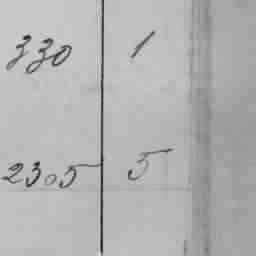 330 1
2305 5